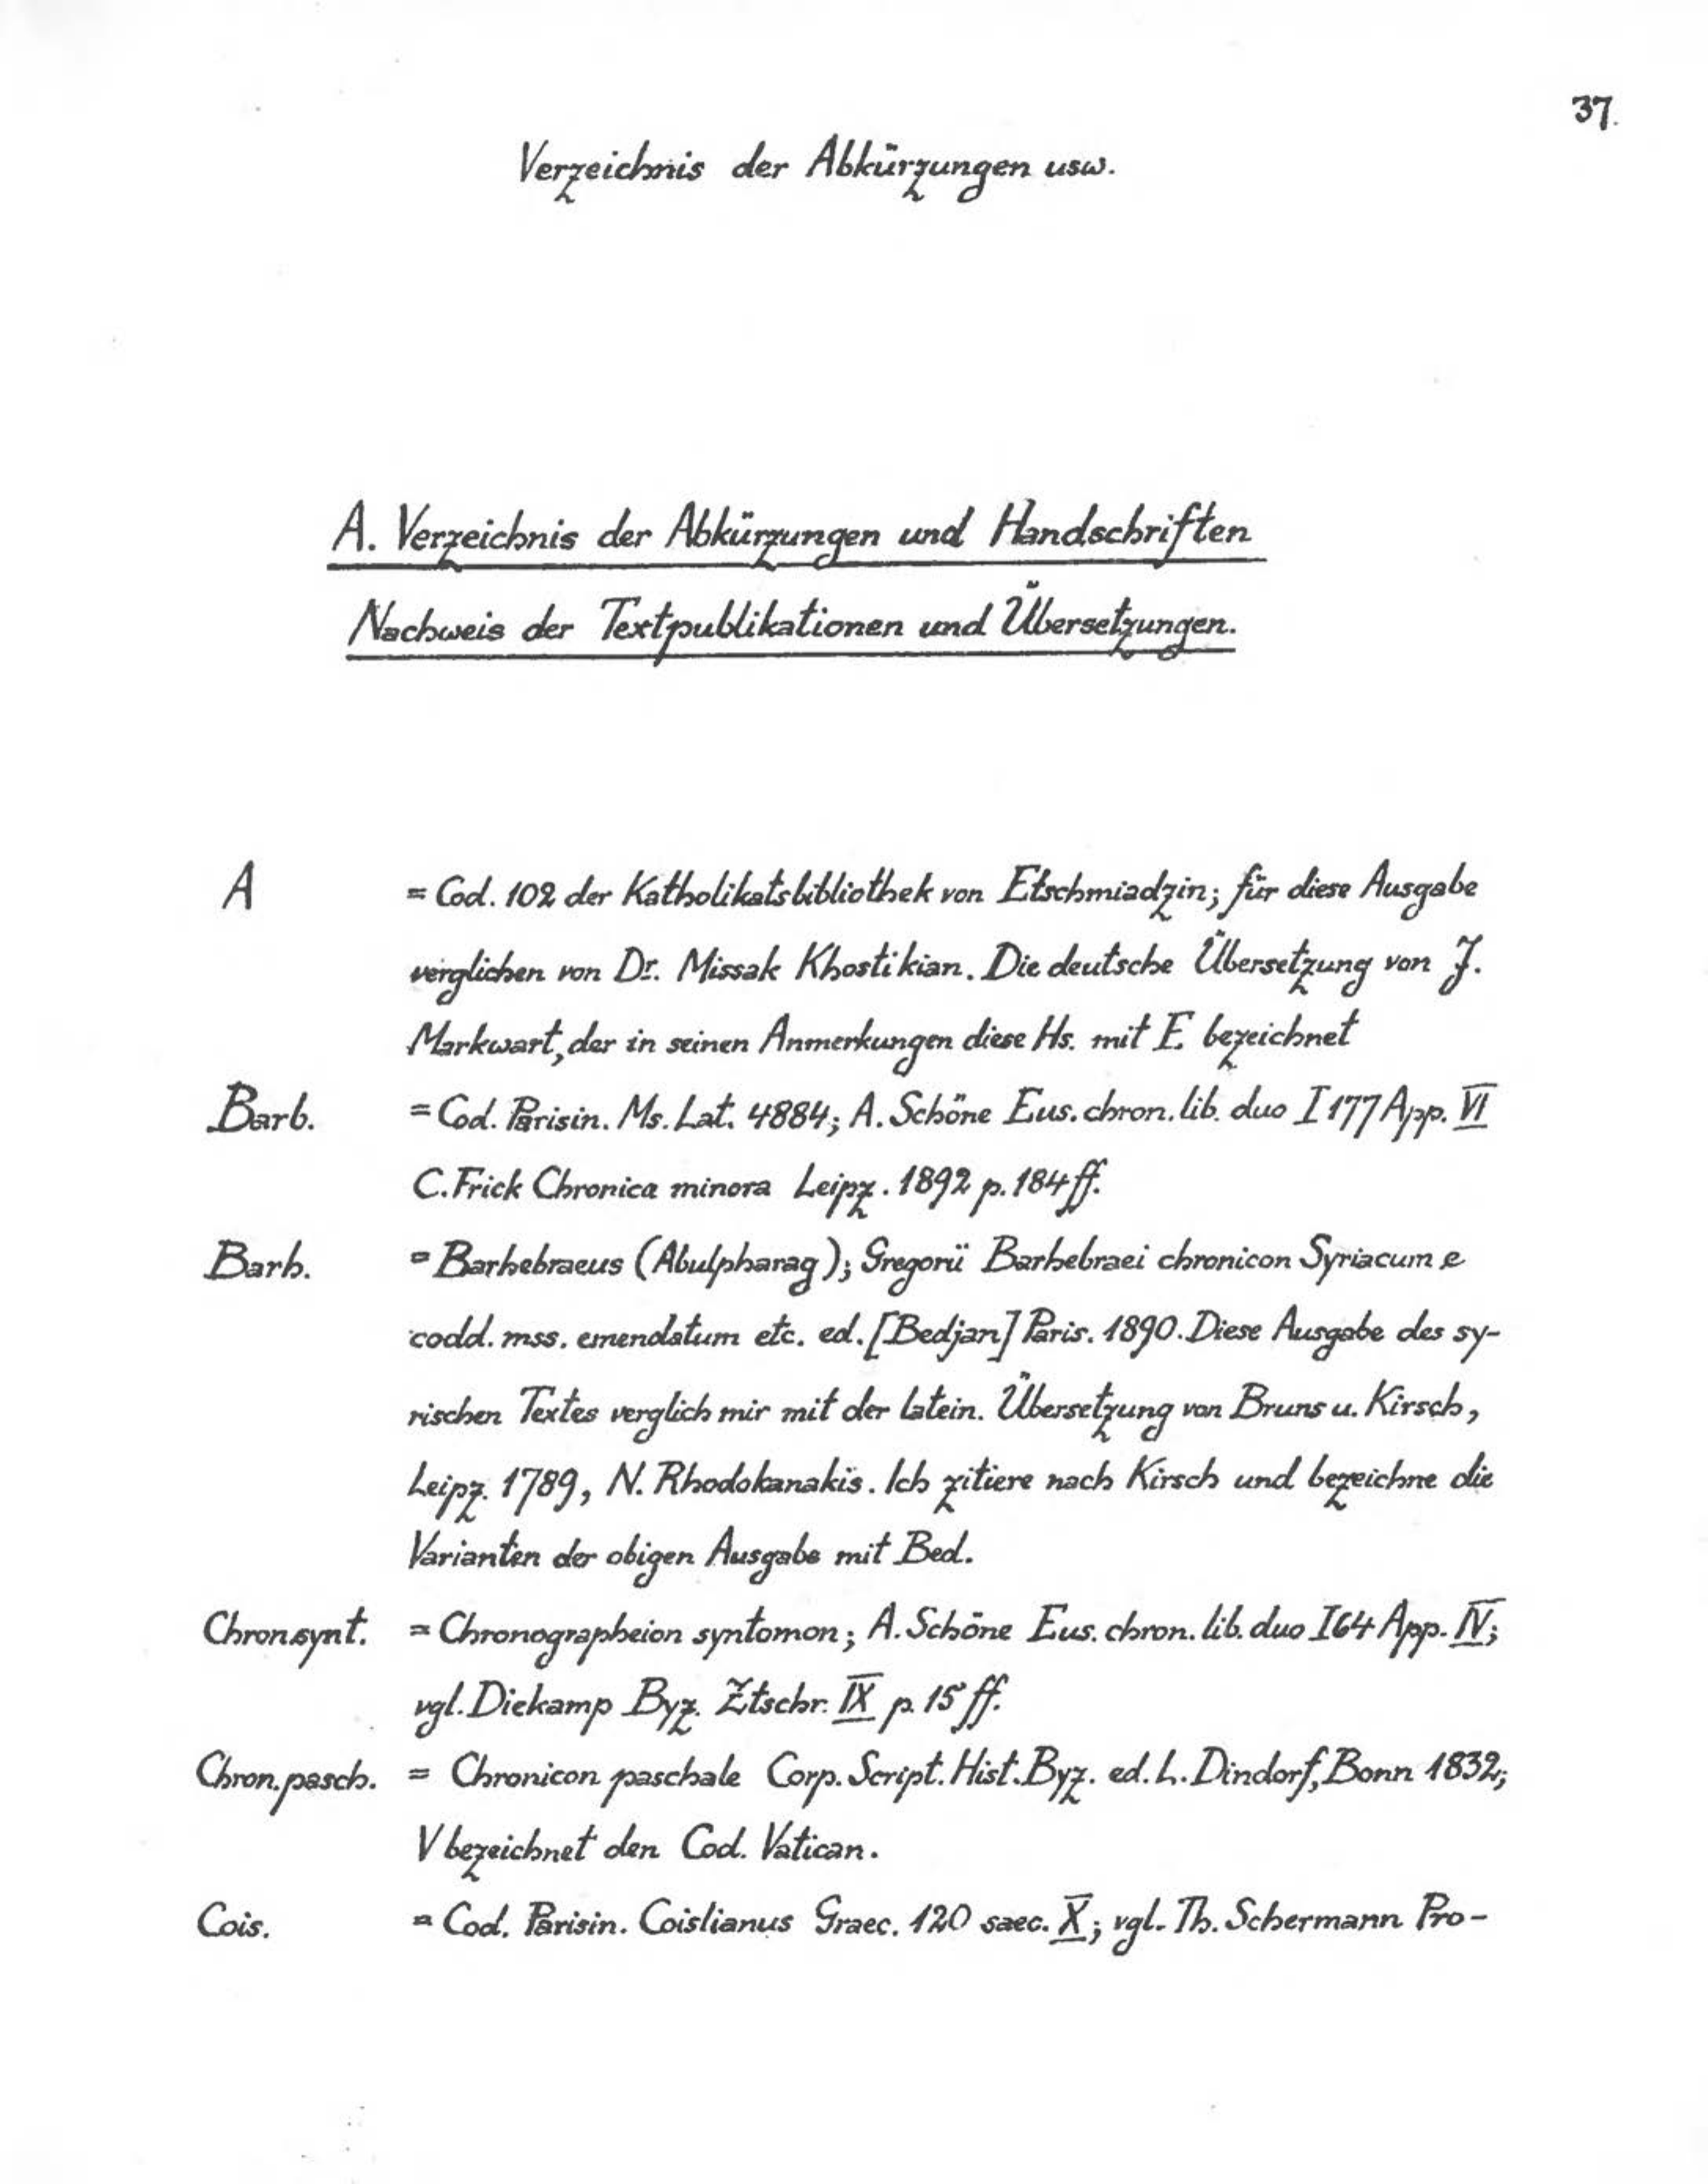 37.
Verzeichnis der Abkürzungen usw.
A. Verzeichnis der Abkürzungen und Handschriften
Nachweis der Textpublikationen und Übersetzungen.
A = Cod. 102 der Katholikatsbibliothek von Etschmiadzin; für diese Ausgabe
verglichen von Dr. Missak Khostikian. Die deutsche Übersetzung von J.
Markwart, der in seinen Anmerkungen diese Hs. mit E bezeichnet
Barb. = Cod. Parisin. Ms. Lat. 4884; A. Schöne Eus. chron. lib. duo I 177 App. VI
C. Frick Chronica minora Leipz. 1892 p. 184 ff.
Barh. = Barhebraeus (Abulpharag); Gregorii Barhebraei chronicon Syriacum e
codd. mss. emendatum etc. ed. [Bedjan] Paris. 1890. Diese Ausgabe des sy-
rischen Textes verglich mir mit der latein. Übersetzung von Bruns u. Kirsch,
Leipz. 1789, N. Rhodokanakis. Ich zitiere nach Kirsch und bezeichne die
Varianten der obigen Ausgabe mit Bed.
Chron.synt. = Chronographeion syntomon; A. Schöne Eus. chron. lib. duo I 64 App. IV;
vgl. Diekamp Byz. Ztschr. IX p. 15 ff.
Chron. pasch. = Chronicon paschale Corp. Script. Hist. Byz. ed. L. Dindorf, Bonn 1832;
V bezeichnet den Cod. Vatican.
Cois. = Cod. Parisin. Coislianus Graec. 120 saec. X; vgl. Th. Schermann Pro-